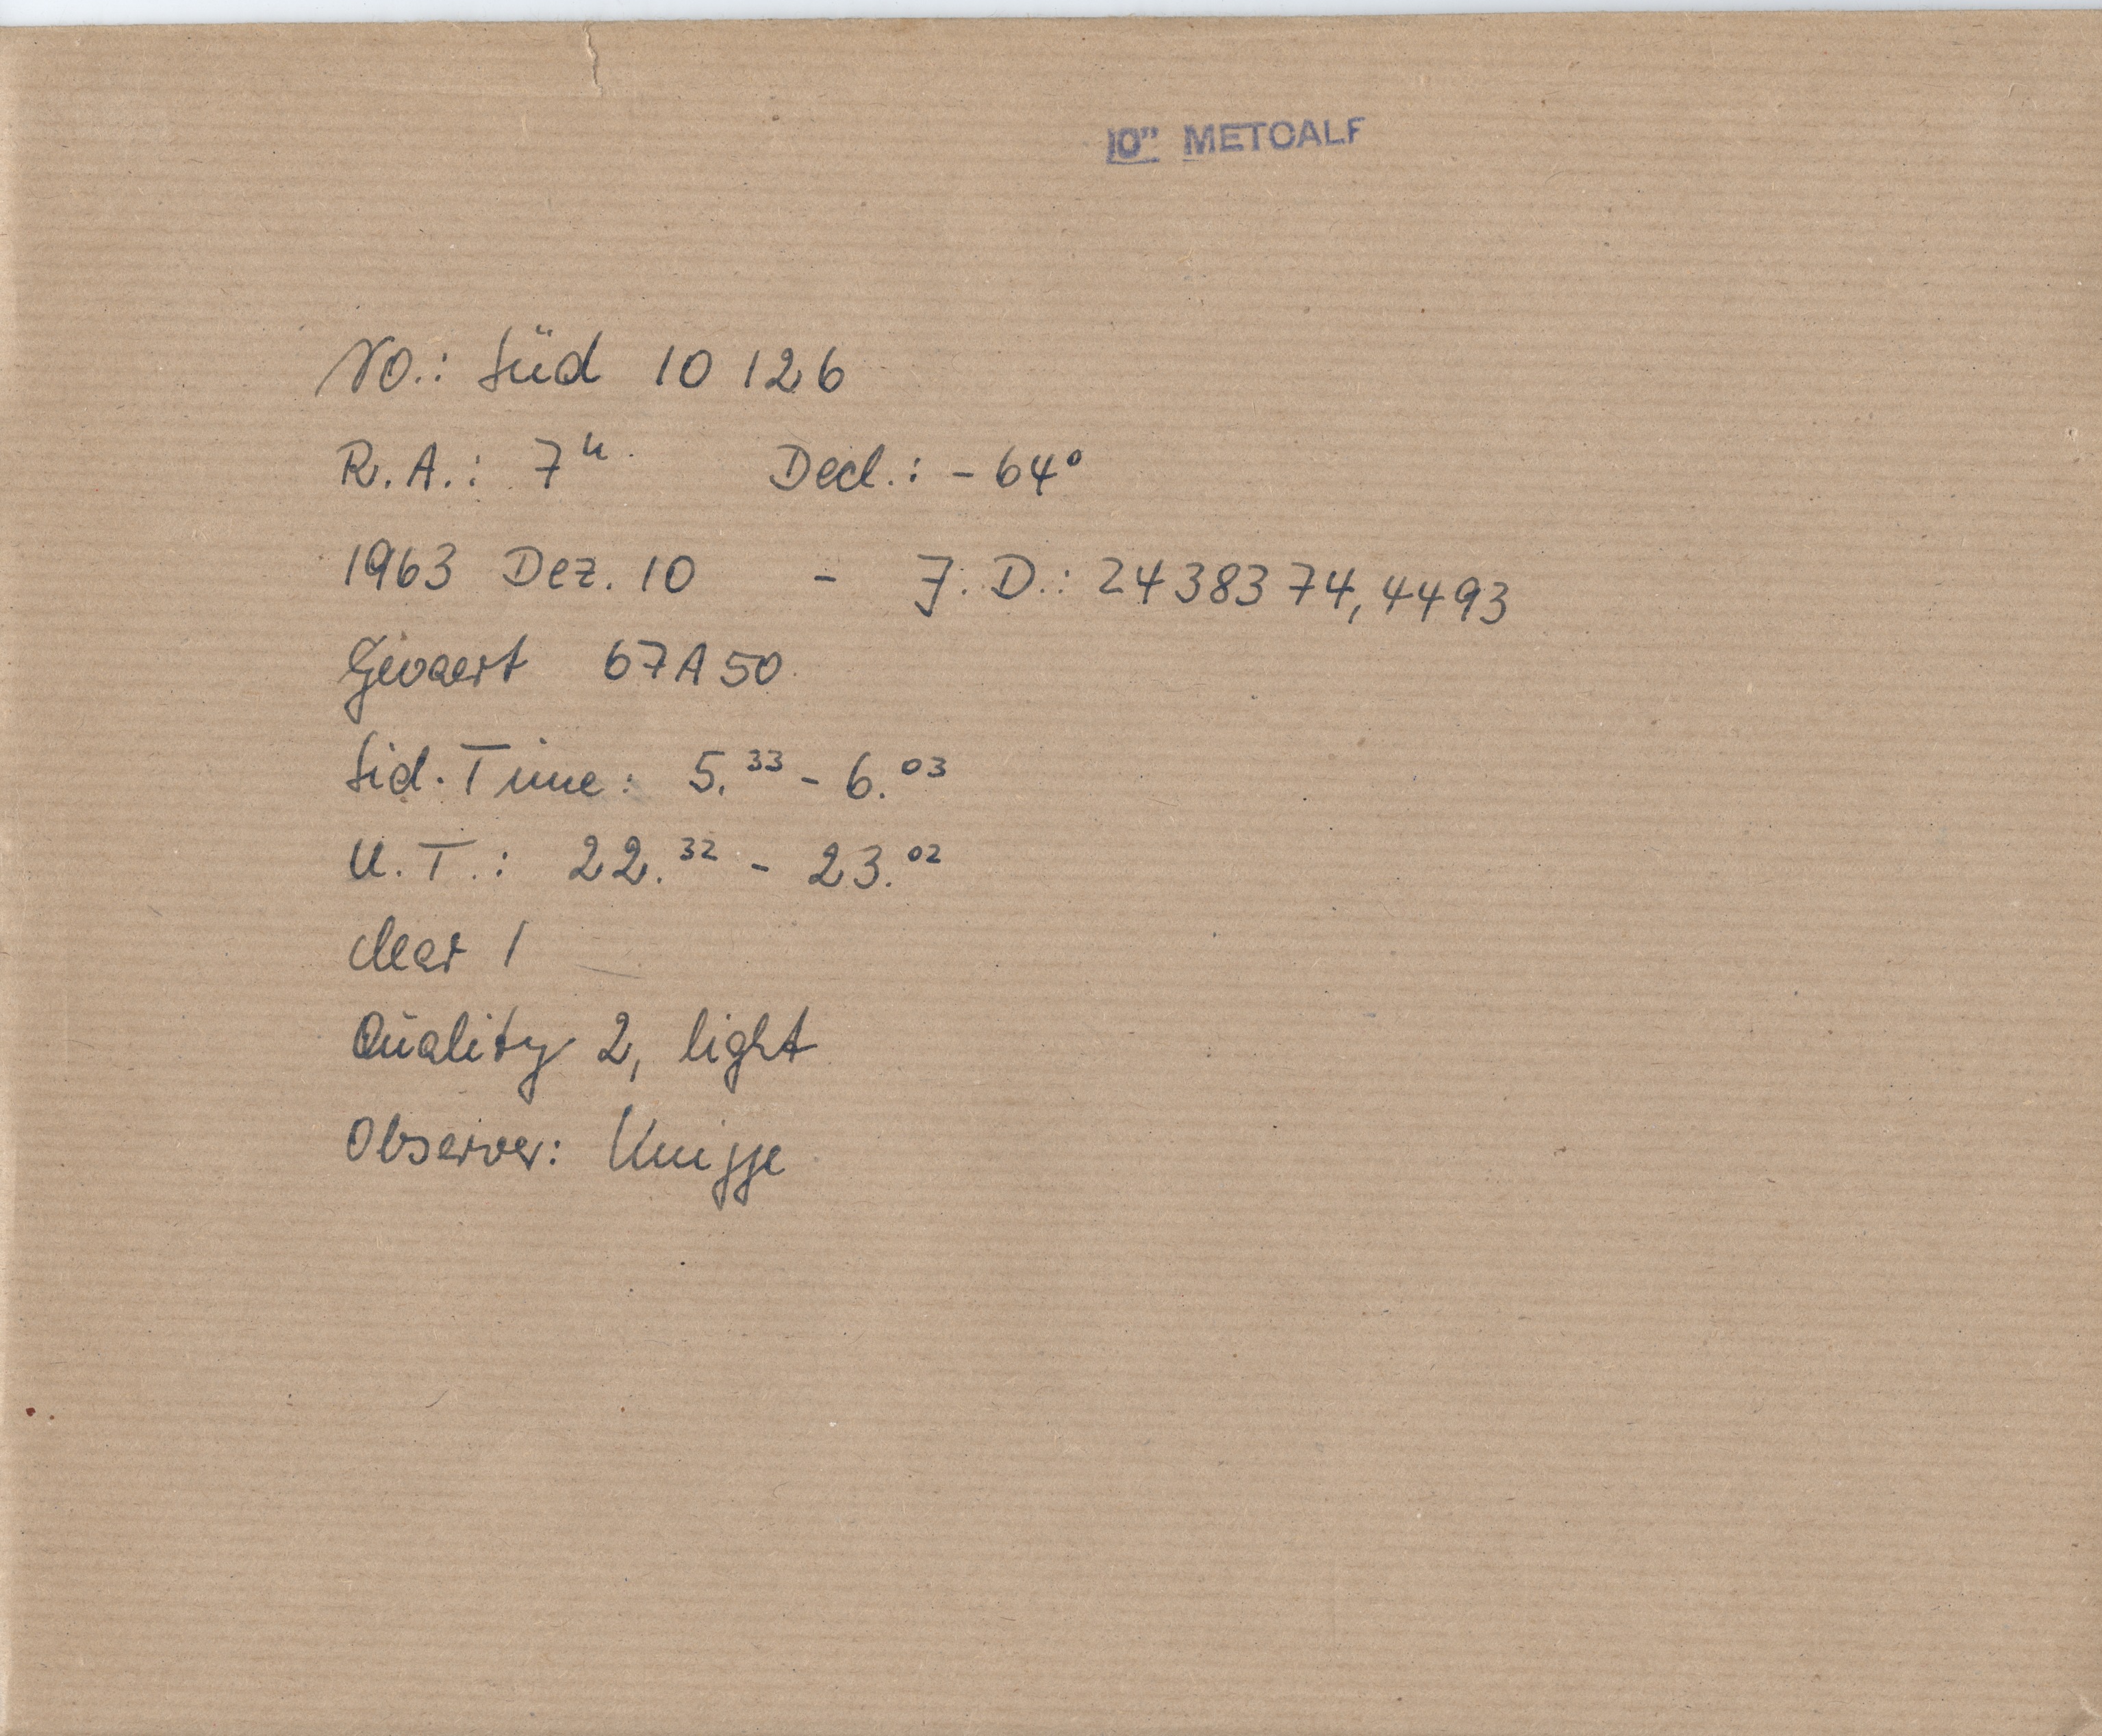 10" METCALF
No.: Süd 10 126
R.A.: 7ʰ Decl.: - 64°
1963 Dez. 10 - J.D.: 2438374,4493
Gevaert 67A50
Sid. Time: 5.³³ - 6.⁰³
U.T.: 22.³² - 23.⁰²
clear 1
Quality 2, light
Observer: Knigge